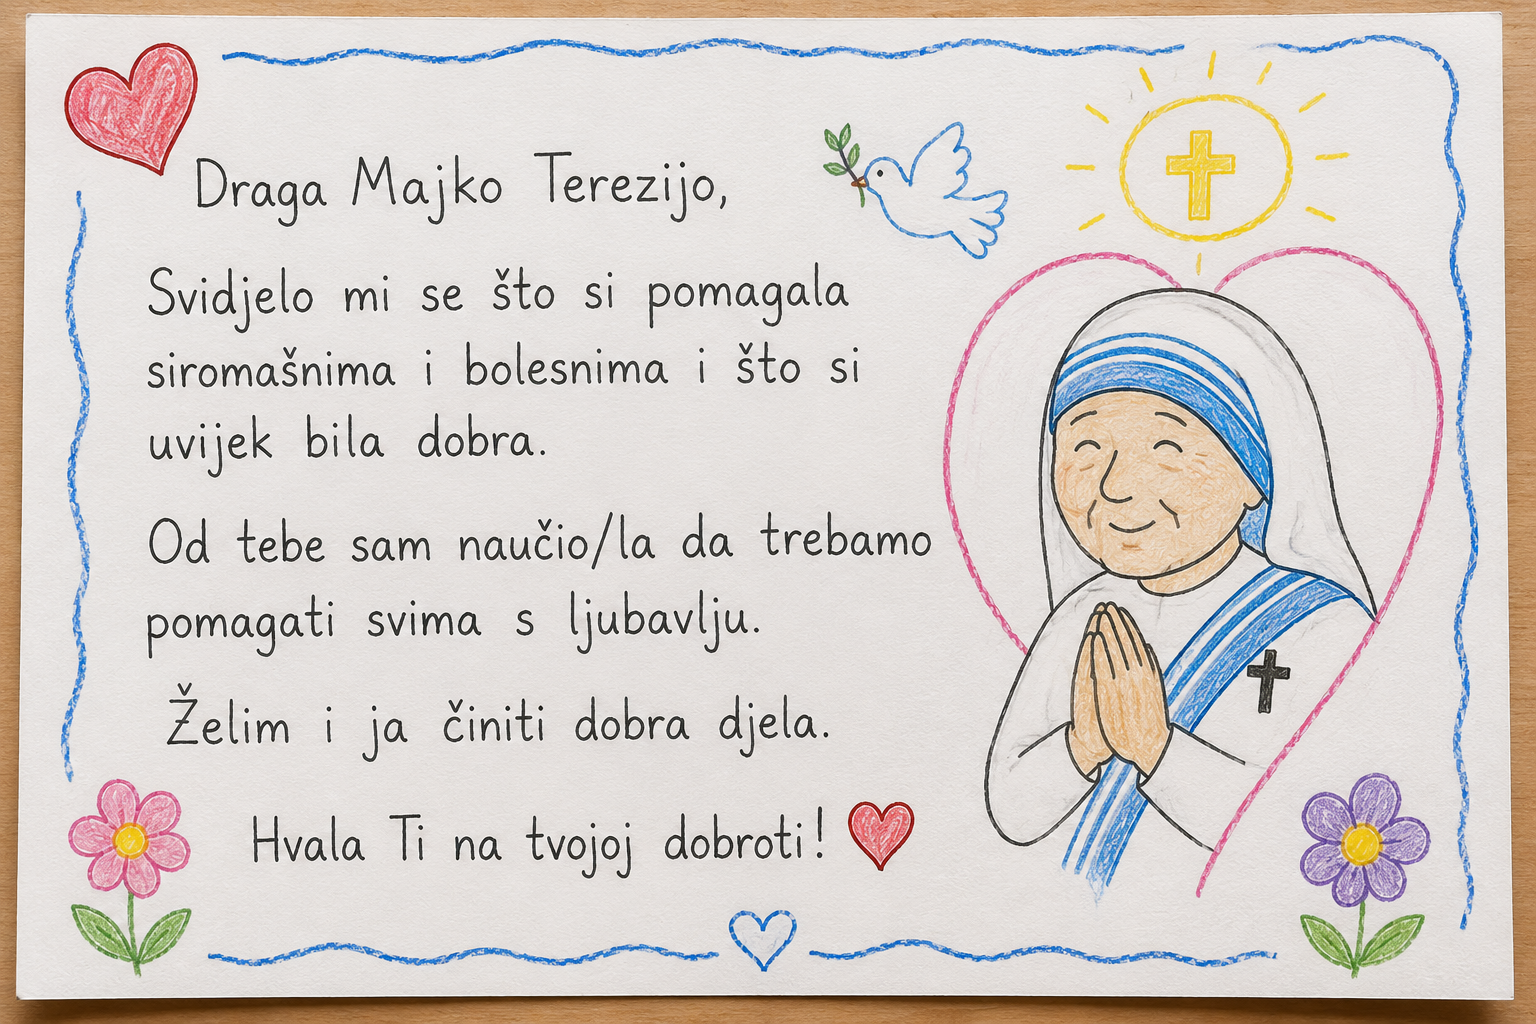 Draga Majko Terezijo,
Svidjelo mi se što si pomagala
siromašnima i bolesnima i što si
uvijek bila dobra.
Od tebe sam naučio/la da trebamo
pomagati svima s ljubavlju.
Želim i ja činiti dobra djela.
Hvala Ti na tvojoj dobroti!